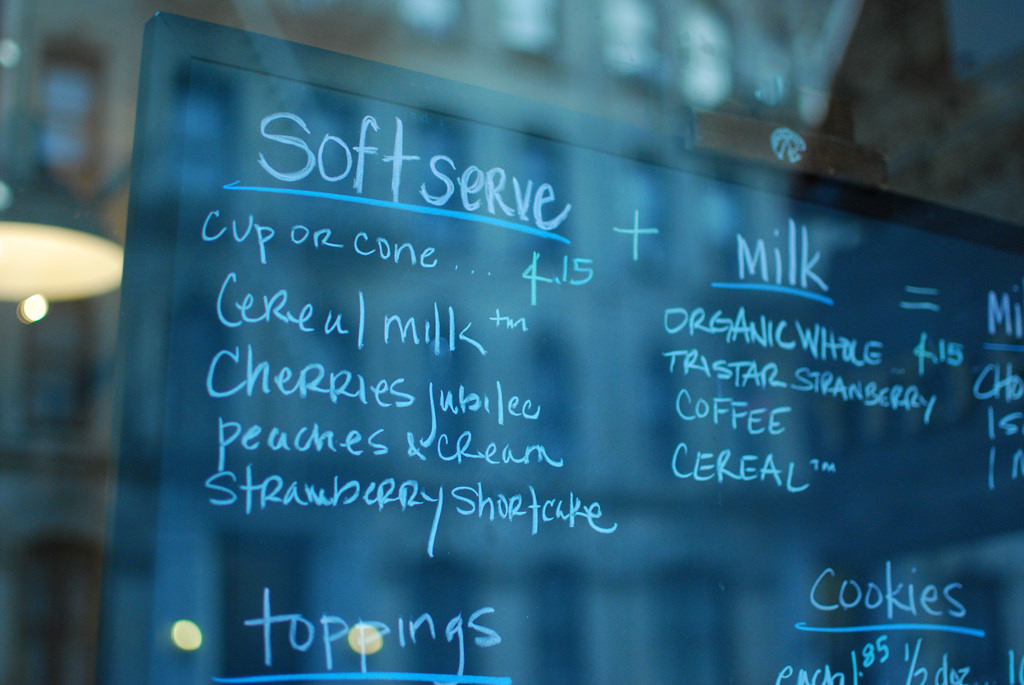 Soft serve
+
Milk
=
Mi
cup or cone .... 4.15
Cereal milk™
Cherries jubilee
peaches & cream
Strawberry shortcake
ORGANIC WHOLE .. 4.15
TRISTAR STRANBERRY
COFFEE
CEREAL™
CHO
toppings
Cookies
each 1.85 1/2 doz...